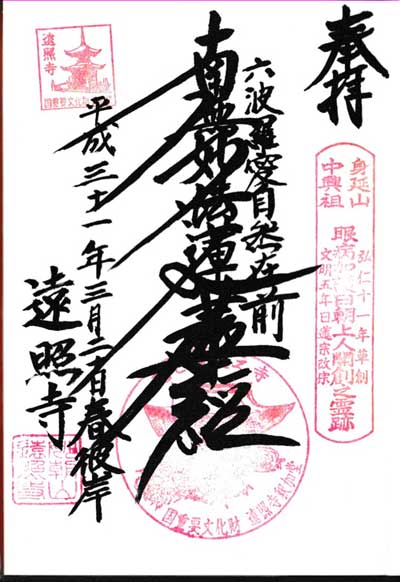 奉拝
身延山
中興祖
眼病加護日朝上人開創之霊跡
弘仁十一年草創
文明五年日蓮宗改宗
六波羅蜜自然在前
南無妙法蓮華経
平成三十一年三月二十日春彼岸
遠照寺
遠照寺
国重要文化財
国重要文化財 遠照寺釈迦堂